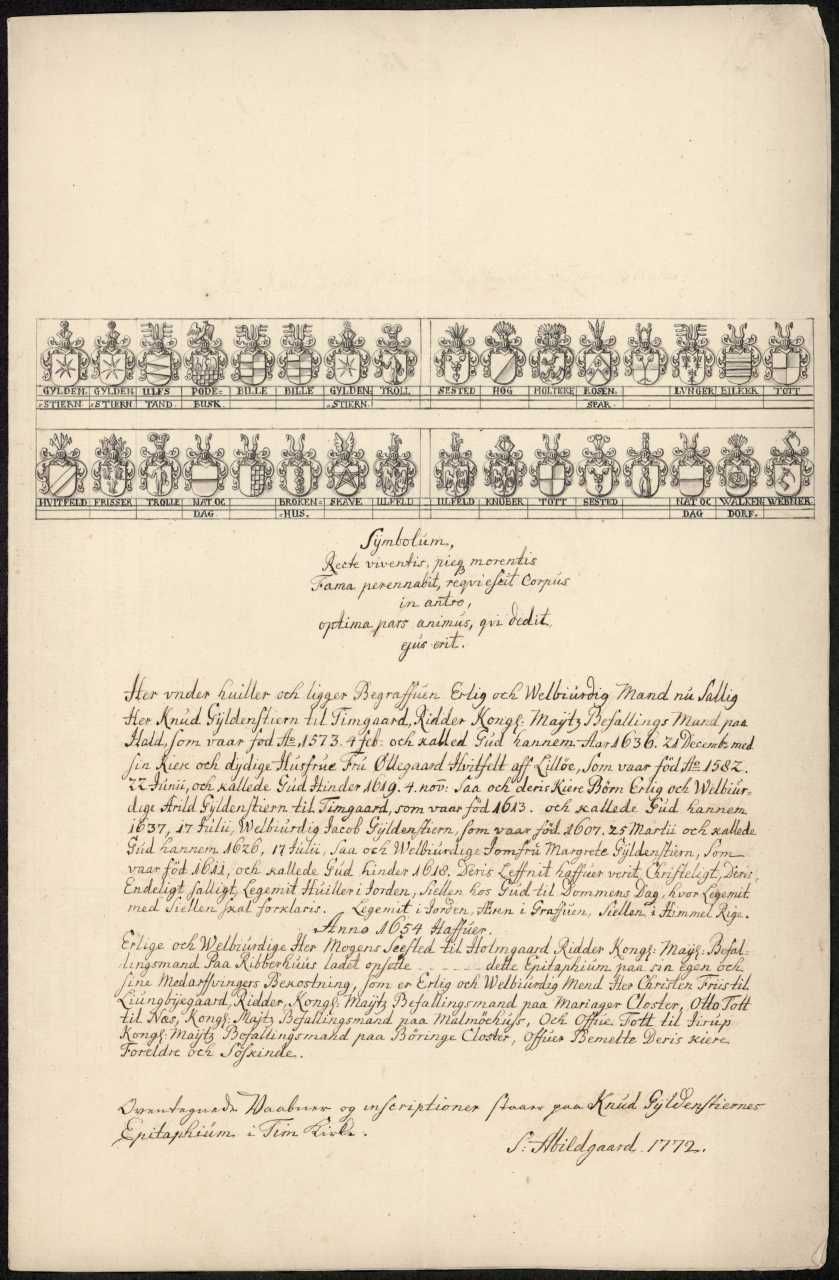 GYLDEN= GYLDEN ULFS PODE= BILLE BILLE GYLDEN= TROLL SESTED HØG HOLTEKE ROSEN= LVNGER BILKER TOTT
=STIERN =STIERN TAND. BUSK. =STIERN. SPAR.
HVITFELD FRISSER TROLLE NAT OC BROKEN= SKAVE ULFELD ULFELD KNØBER TOTT SESTED NAT OC WALKEN= WEBNER
DAG =HUS. DAG DORF.
Sÿmbolúm,
Recte viventis, pieq morentis
Fama perennabit, reqviescit Corpus
in antro,
optima pars animús, qvi dedit,
ejús erit.
Her vnder huiller och ligger Begraffuen Erlig och Welbiúrdig Mand nú Sallig
Her Knúd Gÿldenstiern til Timgaard, Ridder Kongl: Maÿtz Befallings Mand paa
Hald, som vaar fød Ao. 1573. 4 feb: och kalled Gúd hannem Aar 1636. 21 Decemb: med
sin Kiek och dÿdige Húsfrúe Frú Øllegaard Hvitfelt aff Lilløe, Som vaar fød Ao 1582.
22 Iúnii, och kallede Gúd Hinder 1619. 4. nov: Saa och deris Kiere Børn Erlig och Welbiúr-
dige Arild Gÿldenstiern til Timgaard, som vaar fød 1613. och kallede Gúd hannem
1637, 17 Iúlii, Welbiúrdig Iacob Gÿldenstiern, som vaar fød 1607. 25 Martii och kallede
Gúd hannem 1626, 17 Iúlii, Saa och Welbiúrdige Iomfrú Margrete Gÿldenstiern, Som
vaar fød 1611, och kallede Gúd hinder 1618. Deris Leffnit haffuer verit Christeligt, Deris
Endeligt salligt, Legemit Húiller i Iorden, Siellen hos Gúd til Dommens Dag, hvor Legemit
med Siellen skal forklaris. Legemit i Iorden, Æren i Graffuen, Siellen i Himmel Rige.
Anno 1654 Haffuer.
Erlige och Welbiúrdige Her Mogens Seested til Holmgaard Ridder Kongl: Maÿs: Befal-
lingsmand Paa Ribberhúús ladet opsette - - - - - dette Epitaphium paa sin Egen och
sine Medarffvingers Bekostning, som er Erlig och Welbiúrdig Mend Her Christen Friis til
Liungbÿegaard, Ridder, Kongl: Maÿtz Befallingsmand paa Mariager Closter, Otto Tott
til Næs, Kongl: Majtz Befallingsmand paa Malmøehuys, Och Offue Tott til Iirup
Kongl: Maÿtz Befallingsmand paa Børinge Closter, Offuer Bemelte Deris kiere
Foreldre och Søskinde.
Oventegnede Vaabner og inscriptioner staaer paa Knúd Gÿldenstiernes
Epitaphiúm i Tim Kirke.
S: Abildgaard. 1772.